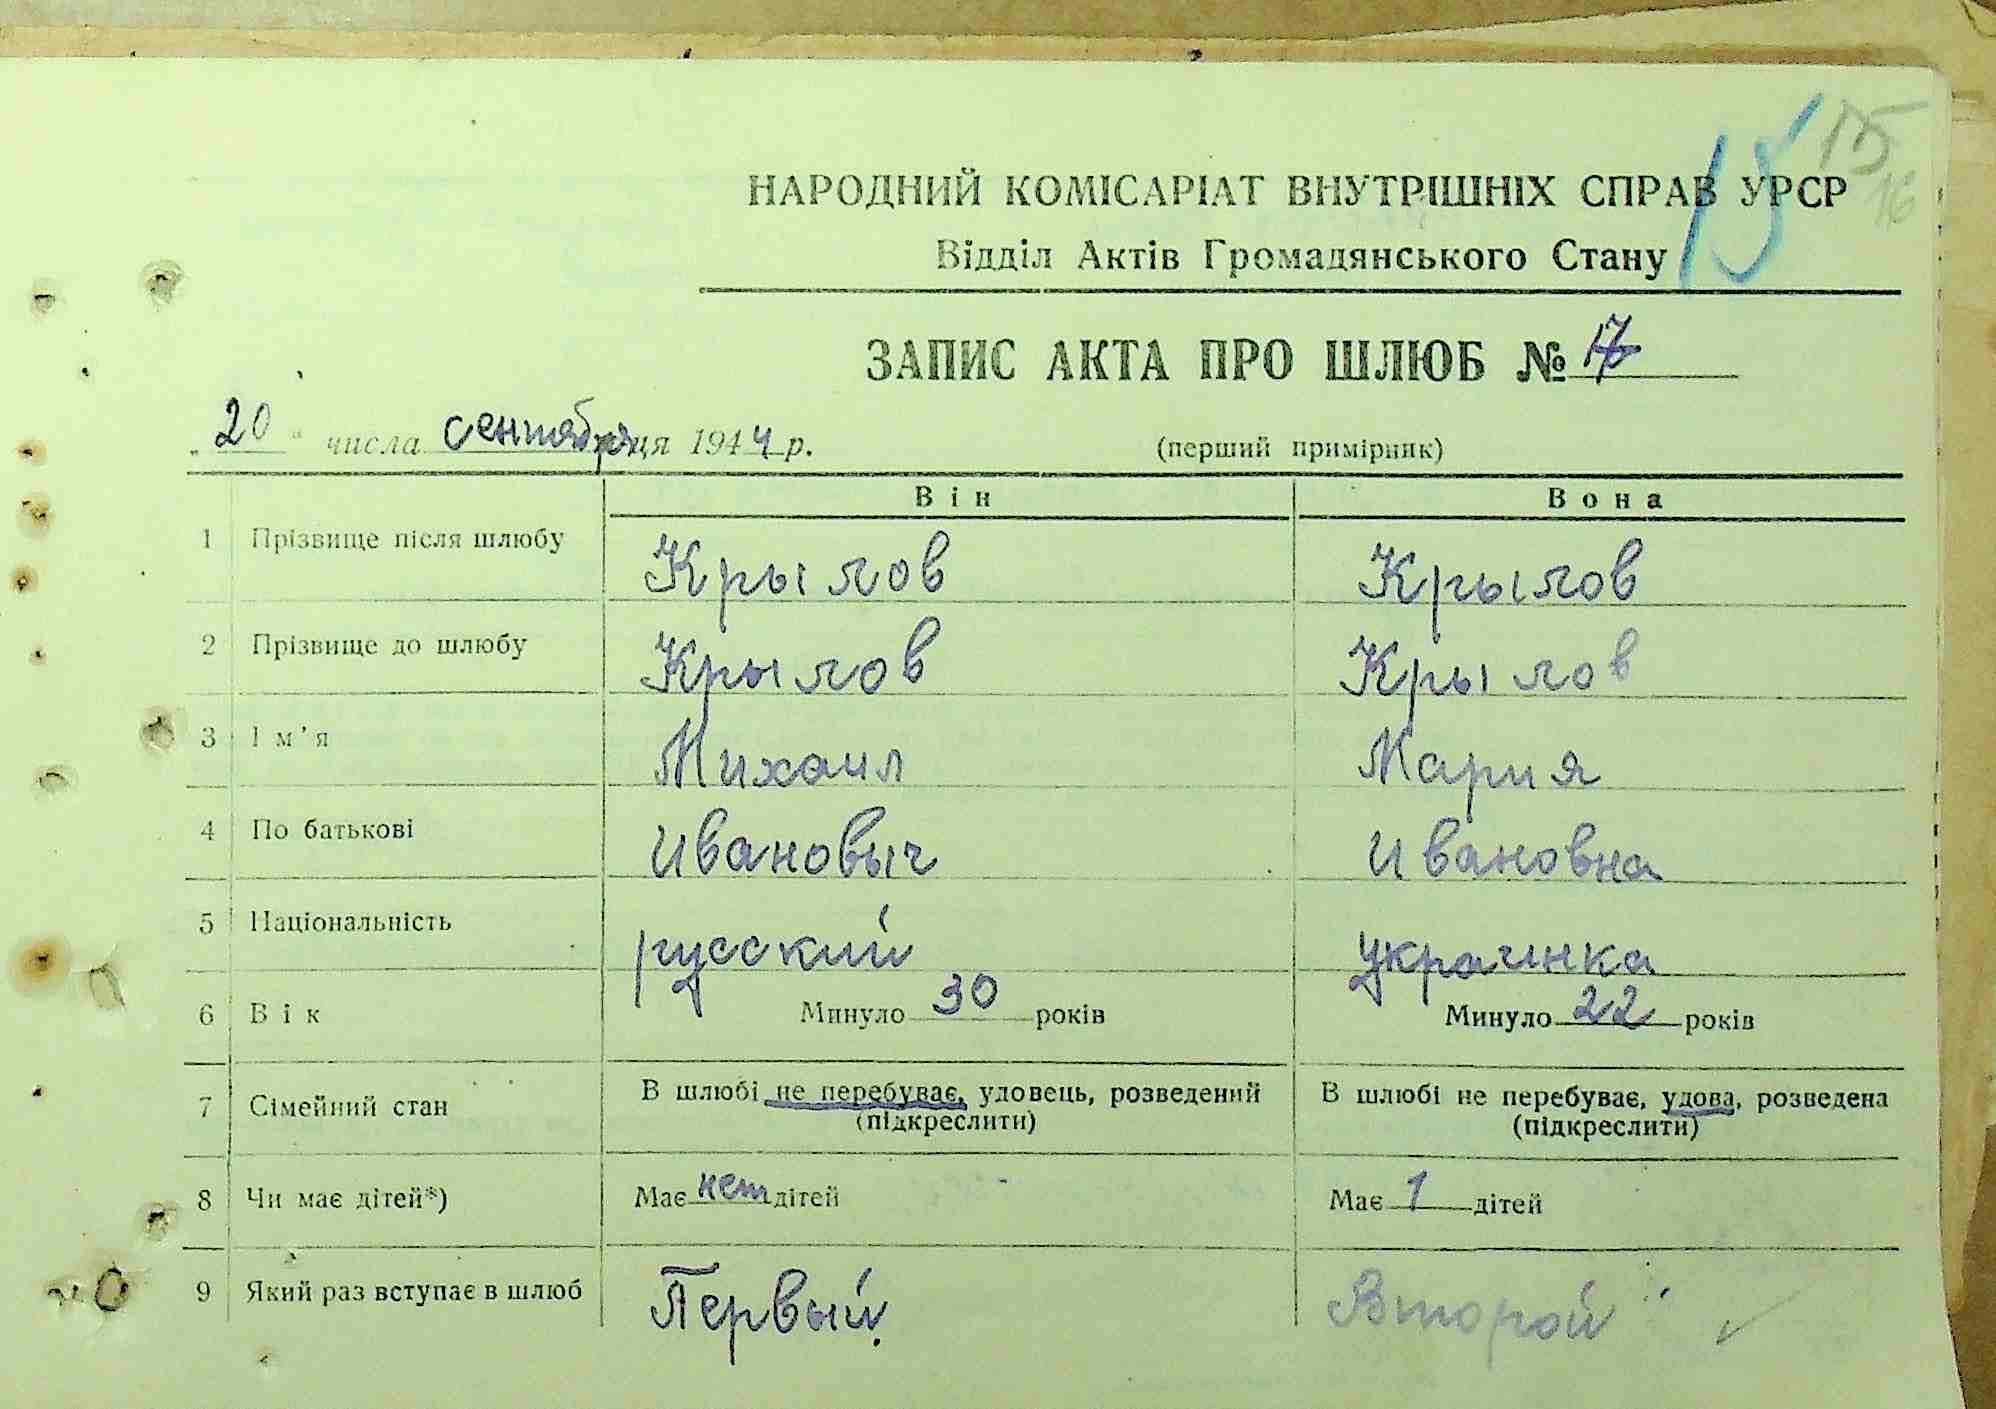 15
15
16
НАРОДНИЙ КОМІСАРІАТ ВНУТРІШНІХ СПРАВ УРСР
Відділ Актів Громадянського Стану
ЗАПИС АКТА ПРО ШЛЮБ №
„20“ числа сентября ця 1944 р. (перший примірник)
Він Вона
1 Прізвище після шлюбу Крылов Крылов
2 Прізвище до шлюбу Крылов Крылов
3 Ім'я Михаил Мария
4 По батькові Ивановыч Ивановна
5 Національність русский украинка
6 Вік Минуло 30 років Минуло 22 років
7 Сімейний стан В шлюбі не перебуває, удовець, розведений В шлюбі не перебуває, удова, розведена
(підкреслити) (підкреслити)
8 Чи має дітей*) Має нет дітей Має 1 дітей
9 Який раз вступає в шлюб Первый Второй